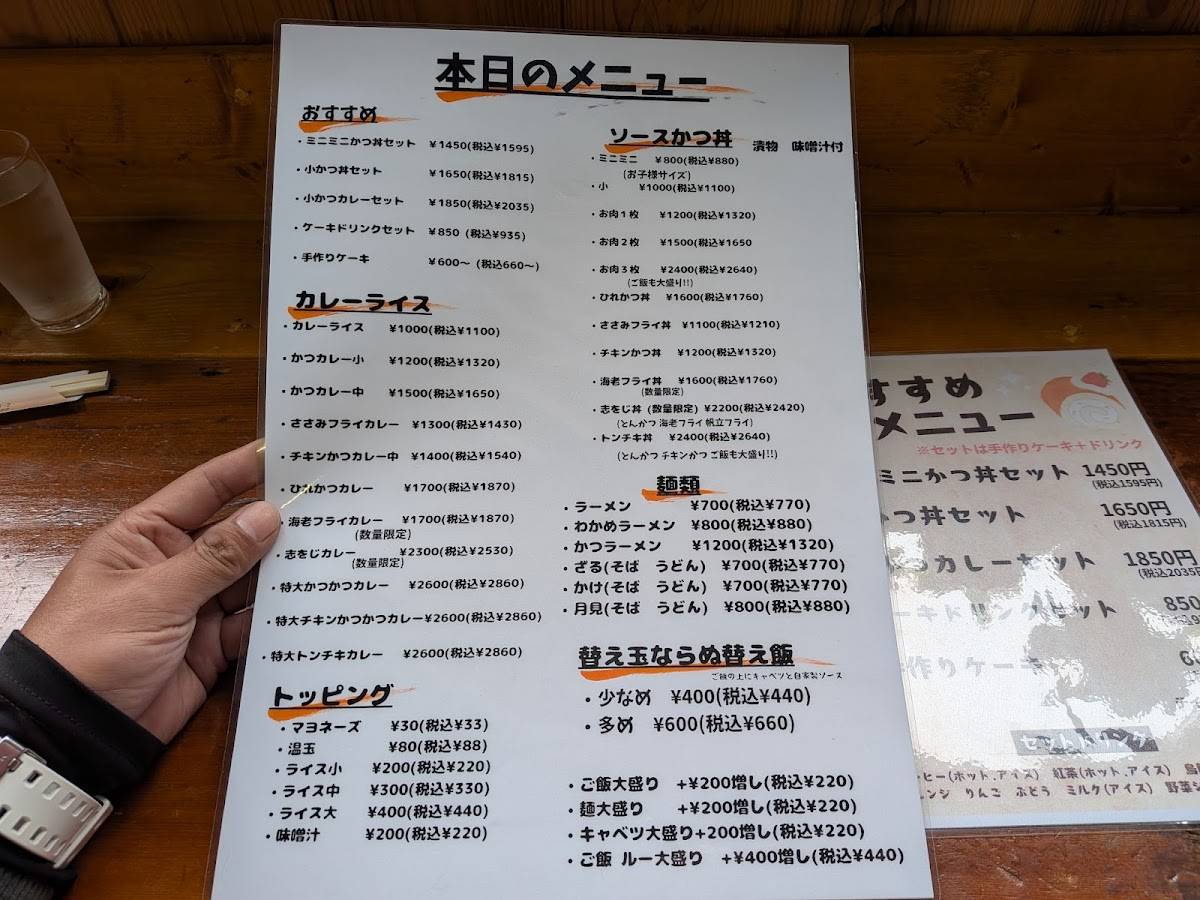 本日のメニュー
おすすめ
・ミニミニかつ丼セット ¥1450(税込¥1595)
・小かつ丼セット ¥1650(税込¥1815)
・小かつカレーセット ¥1850(税込¥2035)
・ケーキドリンクセット ¥850 (税込¥935)
・手作りケーキ ¥600～ (税込660～)
カレーライス
・カレーライス ¥1000(税込¥1100)
・かつカレー小 ¥1200(税込¥1320)
・かつカレー中 ¥1500(税込¥1650)
・ささみフライカレー ¥1300(税込¥1430)
・チキンかつカレー中 ¥1400(税込¥1540)
・ひれかつカレー ¥1700(税込¥1870)
・海老フライカレー ¥1700(税込¥1870)
(数量限定)
・志をじカレー ¥2300(税込¥2530)
(数量限定)
・特大かつかつカレー ¥2600(税込¥2860)
・特大チキンかつかつカレー¥2600(税込¥2860)
・特大トンチキカレー ¥2600(税込¥2860)
トッピング
・マヨネーズ ¥30(税込¥33)
・温玉 ¥80(税込¥88)
・ライス小 ¥200(税込¥220)
・ライス中 ¥300(税込¥330)
・ライス大 ¥400(税込¥440)
・味噌汁 ¥200(税込¥220)
ソースかつ丼 漬物 味噌汁付
・ミニミニ ¥800(税込¥880)
(お子様サイズ)
・小 ¥1000(税込¥1100)
・お肉1枚 ¥1200(税込¥1320)
・お肉2枚 ¥1500(税込¥1650
・お肉3枚 ¥2400(税込¥2640)
(ご飯も大盛り!!)
・ひれかつ丼 ¥1600(税込¥1760)
・ささみフライ丼 ¥1100(税込¥1210)
・チキンかつ丼 ¥1200(税込¥1320)
・海老フライ丼 ¥1600(税込¥1760)
(数量限定)
・志をじ丼 (数量限定) ¥2200(税込¥2420)
(とんかつ 海老フライ 帆立フライ)
・トンチキ丼 ¥2400(税込¥2640)
(とんかつ チキンかつ ご飯も大盛り!!)
麺類
・ラーメン ¥700(税込¥770)
・わかめラーメン ¥800(税込¥880)
・かつラーメン ¥1200(税込¥1320)
・ざる(そば うどん) ¥700(税込¥770)
・かけ(そば うどん) ¥700(税込¥770)
・月見(そば うどん) ¥800(税込¥880)
替え玉ならぬ替え飯
ご飯の上にキャベツと自家製ソース
・少なめ ¥400(税込¥440)
・多め ¥600(税込¥660)
・ご飯大盛り +¥200増し(税込¥220)
・麺大盛り +¥200増し(税込¥220)
・キャベツ大盛り+200増し(税込¥220)
・ご飯 ルー大盛り +¥400増し(税込¥440)
すすめ
メニュー
※セットは手作りケーキ+ドリンク
ミニかつ丼セット 1450円
(税込1595円)
つ丼セット 1650円
(税込1815円)
カレーセット 1850円
(税込2035円
ーキドリンクセット 850
作りケーキ
セットドリンク
ーヒー(ホット.アイス) 紅茶(ホット.アイス)
ンジ りんご ぶどう ミルク(アイス) 野菜ジ